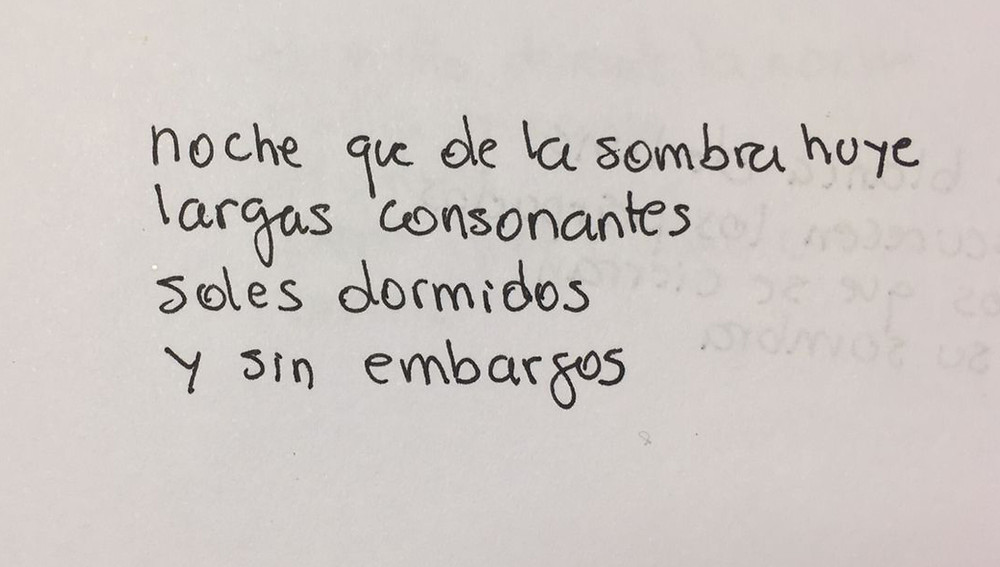 noche que de la sombra huye
largas consonantes
soles dormidos
y sin embargos